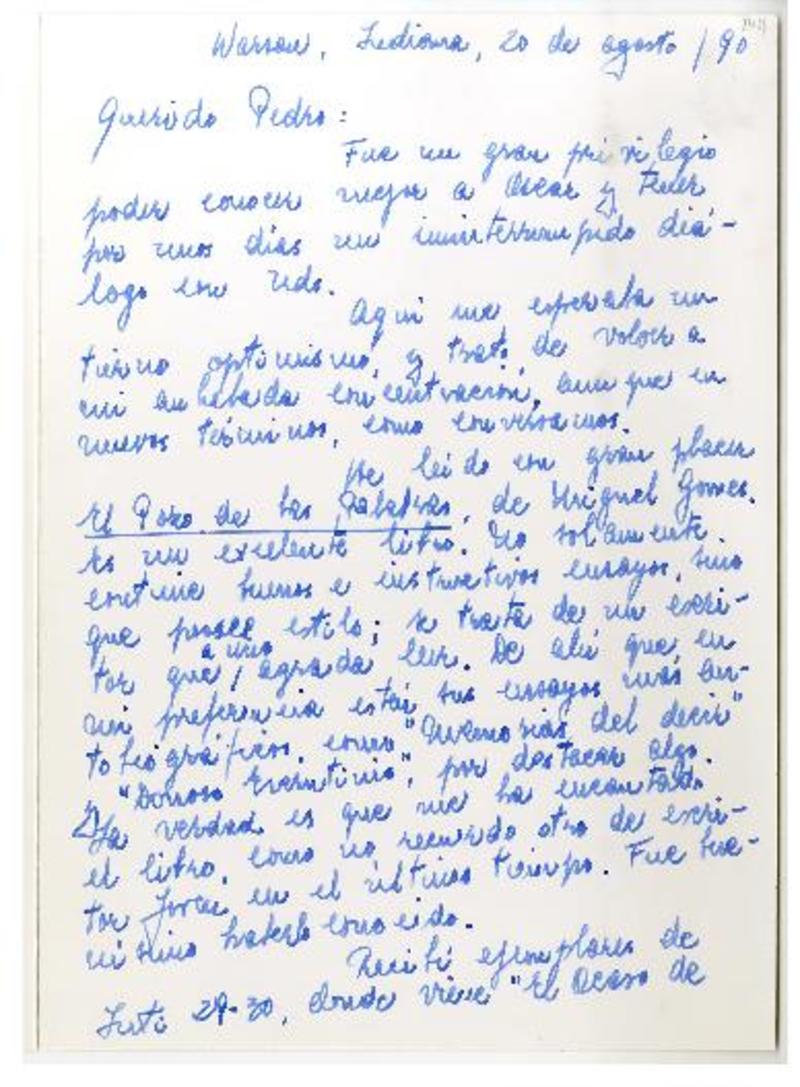 Warsaw, Indiana, 20 de agosto / 90
Querido Pedro:
Fue un gran privilegio
poder conocer mejor a Oscar y tener
por unos días un ininterrumpido diá-
logo con Uds.
Aquí me esperaba un
tierno optimismo, y trato de volver a
mi anhelada concentración, aunque en
nuevos términos, como conversamos.
He leído con gran placer
El Pozo de las Palabras, de Miguel Gomes.
Es un excelente libro. No solamente
contiene buenos e instructivos ensayos, sino
que posee estilo; se trata de un escri-
tor que a uno agrada leer. De ahí que en
mi preferencia están sus ensayos más au-
tobiográficos, como "Memorias del decir"
"Donoso", por destacar algo.
La verdad es que me ha encantado
el libro, como no recuerdo otro de escri-
tor joven en el último tiempo. Fue bue-
nísimo haberlo conocido.
Recibí ejemplares de
Inti 29-30, donde viene "El Ocaso de